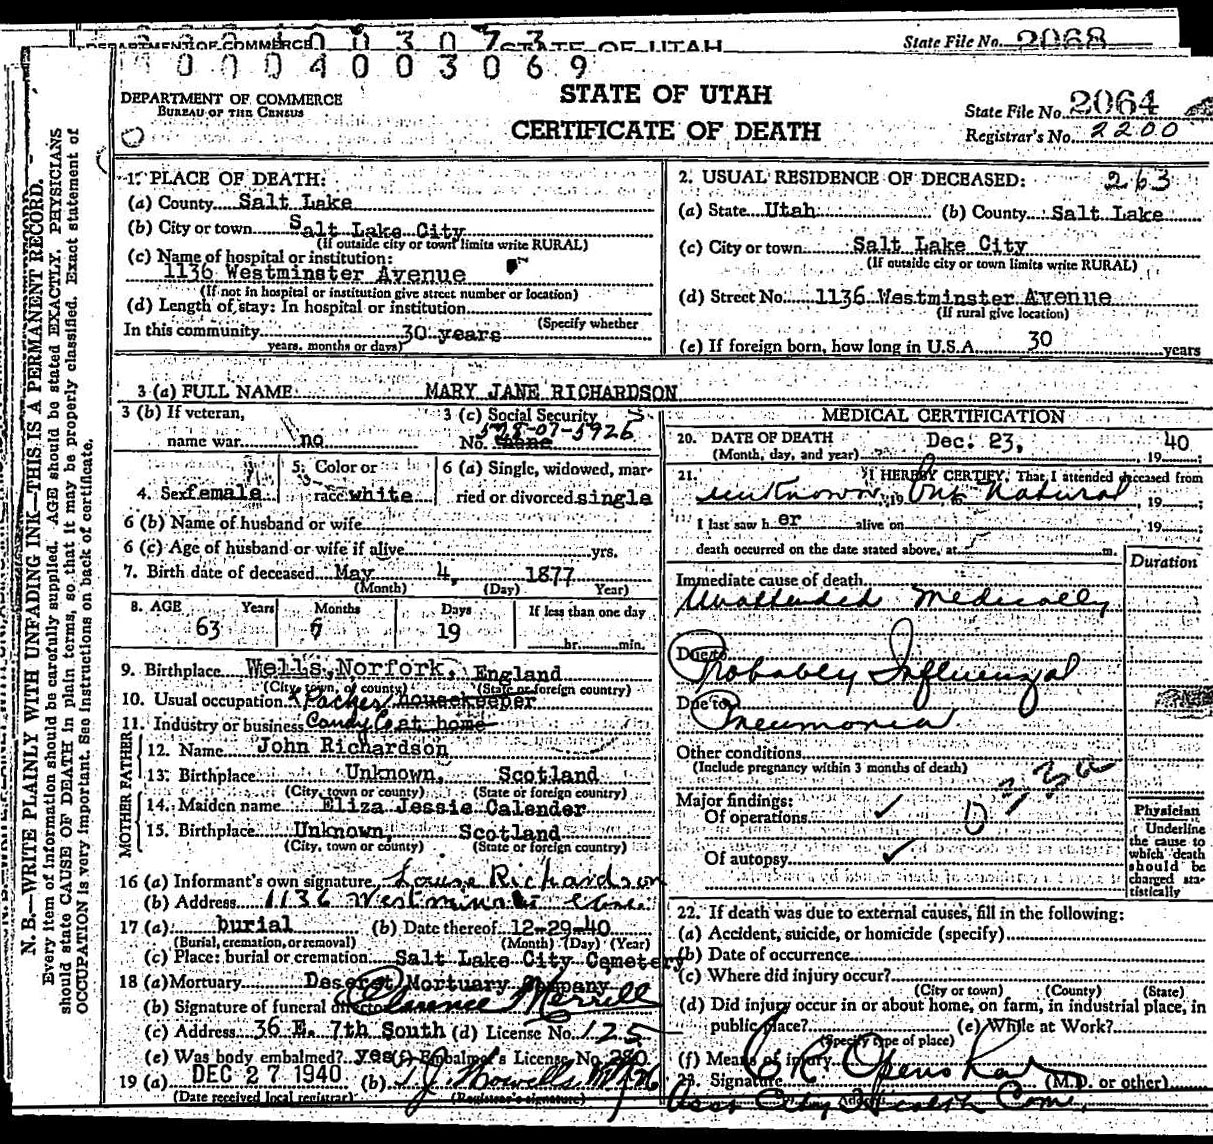 DEPARTMENT OF COMMERCE STATE OF UTAH State File No. 2068
0 0 0 4 0 0 3 0 6 9
DEPARTMENT OF COMMERCE
BUREAU OF THE CENSUS
STATE OF UTAH
CERTIFICATE OF DEATH
State File No. 2064
Registrar's No. 2200
N. B.—WRITE PLAINLY WITH UNFADING INK—THIS IS A PERMANENT RECORD.
Every item of information should be carefully supplied. AGE should be stated EXACTLY. PHYSICIANS
should state CAUSE OF DEATH in plain terms, so that it may be properly classified. Exact statement of
OCCUPATION is very important. See instructions on back of certificate.
1. PLACE OF DEATH:
(a) County Salt Lake
(b) City or town Salt Lake City
(If outside city or town limits write RURAL)
(c) Name of hospital or institution:
1136 Westminster Avenue
(If not in hospital or institution give street number or location)
(d) Length of stay: In hospital or institution
(Specify whether
In this community 30 years
years, months or days)
2. USUAL RESIDENCE OF DECEASED: 263
(a) State Utah (b) County Salt Lake
(c) City or town Salt Lake City
(If outside city or town limits write RURAL)
(d) Street No. 1136 Westminster Avenue
(If rural give location)
(e) If foreign born, how long in U.S.A. 30 years
3 (a) FULL NAME MARY JANE RICHARDSON
3 (b) If veteran,
name war no
3 (c) Social Security
No. 528-07-5926
4. Sex female
5. Color or
race white
6 (a) Single, widowed, mar-
ried or divorced single
6 (b) Name of husband or wife
6 (c) Age of husband or wife if alive yrs.
7. Birth date of deceased May 4, 1877
(Month) (Day) Year)
8. AGE Years Months Days If less than one day
63 7 19 hr. min.
9. Birthplace Wells, Norfork, England
(City, town, or county) (State or foreign country)
10. Usual occupation Packer housekeeper
11. Industry or business Candy Co at home
FATHER
12. Name John Richardson
13. Birthplace Unknown, Scotland
(City, town or county) (State or foreign country)
MOTHER
14. Maiden name Eliza Jessie Calender
15. Birthplace Unknown, Scotland
(City, town or county) (State or foreign country)
16 (a) Informant's own signature Louise Richardson
(b) Address 1136 Westminster
17 (a) burial (b) Date thereof 12-29-40
(Burial, cremation, or removal) (Month) (Day) (Year)
(c) Place: burial or cremation Salt Lake City Cemetery
18 (a) Mortuary Deseret Mortuary Company
(b) Signature of funeral director Clarence Merrill
(c) Address 36 E. 7th South (d) License No. 125
(e) Was body embalmed? yes (f) Embalmer's License No. 280
19 (a) DEC 27 1940 (b) T J Howells
(Date received local registrar) (Registrar's signature)
MEDICAL CERTIFICATION
20. DATE OF DEATH Dec. 23, 19 40
(Month, day, and year)
21. I HEREBY CERTIFY, That I attended deceased from
unknown, 19 but natural, 19
I last saw h er alive on 19
death occurred on the date stated above, at m.
Duration
Immediate cause of death
Unattended Medically
Due to
Probably Influenzal
Due to
Pneumonia
Other conditions
(Include pregnancy within 3 months of death)
33a
Major findings:
Of operations ✓ D
Of autopsy ✓
Physician
Underline
the cause to
which death
should be
charged sta-
tistically
22. If death was due to external causes, fill in the following:
(a) Accident, suicide, or homicide (specify)
(b) Date of occurrence
(c) Where did injury occur?
(City or town) (County) (State)
(d) Did injury occur in or about home, on farm, in industrial place, in
public place? (e) While at Work?
(Specify type of place)
(f) Means of injury
23. Signature (M.D. or other)
Asst City Health Com.